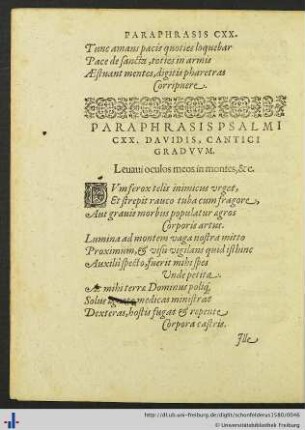 PARAPHRASIS CXX.
Tunc amans pacis quoties loquebar
Pace de sancta, toties in armis
Æstuant mentes, digitis pharetras
Corripuere.
PARAPHRASIS PSALMI
CXX. DAVIDIS, CANTICI
GRADVVM.
Leuaui oculos meos in montes, &c.
DVm ferox telis inimicus vrget,
Et strepit rauco tuba cum fragore,
Aut grauis morbus populatur agros
Corporis artus.
Lumina ad montem vaga nostra mitto
Proximum, & visu vigilans quid istinc
Auxilii specto, fuerit mihi spes
Unde petita.
At mihi terræ Dominus poliq;
Solus medicas ministrat
Dexteras, hostis fugat & repente
Corpora castris.
Ille
http://dl.ub.uni-freiburg.de/diglit/schonfelderus1580/0046
© Universitätsbibliothek Freiburg